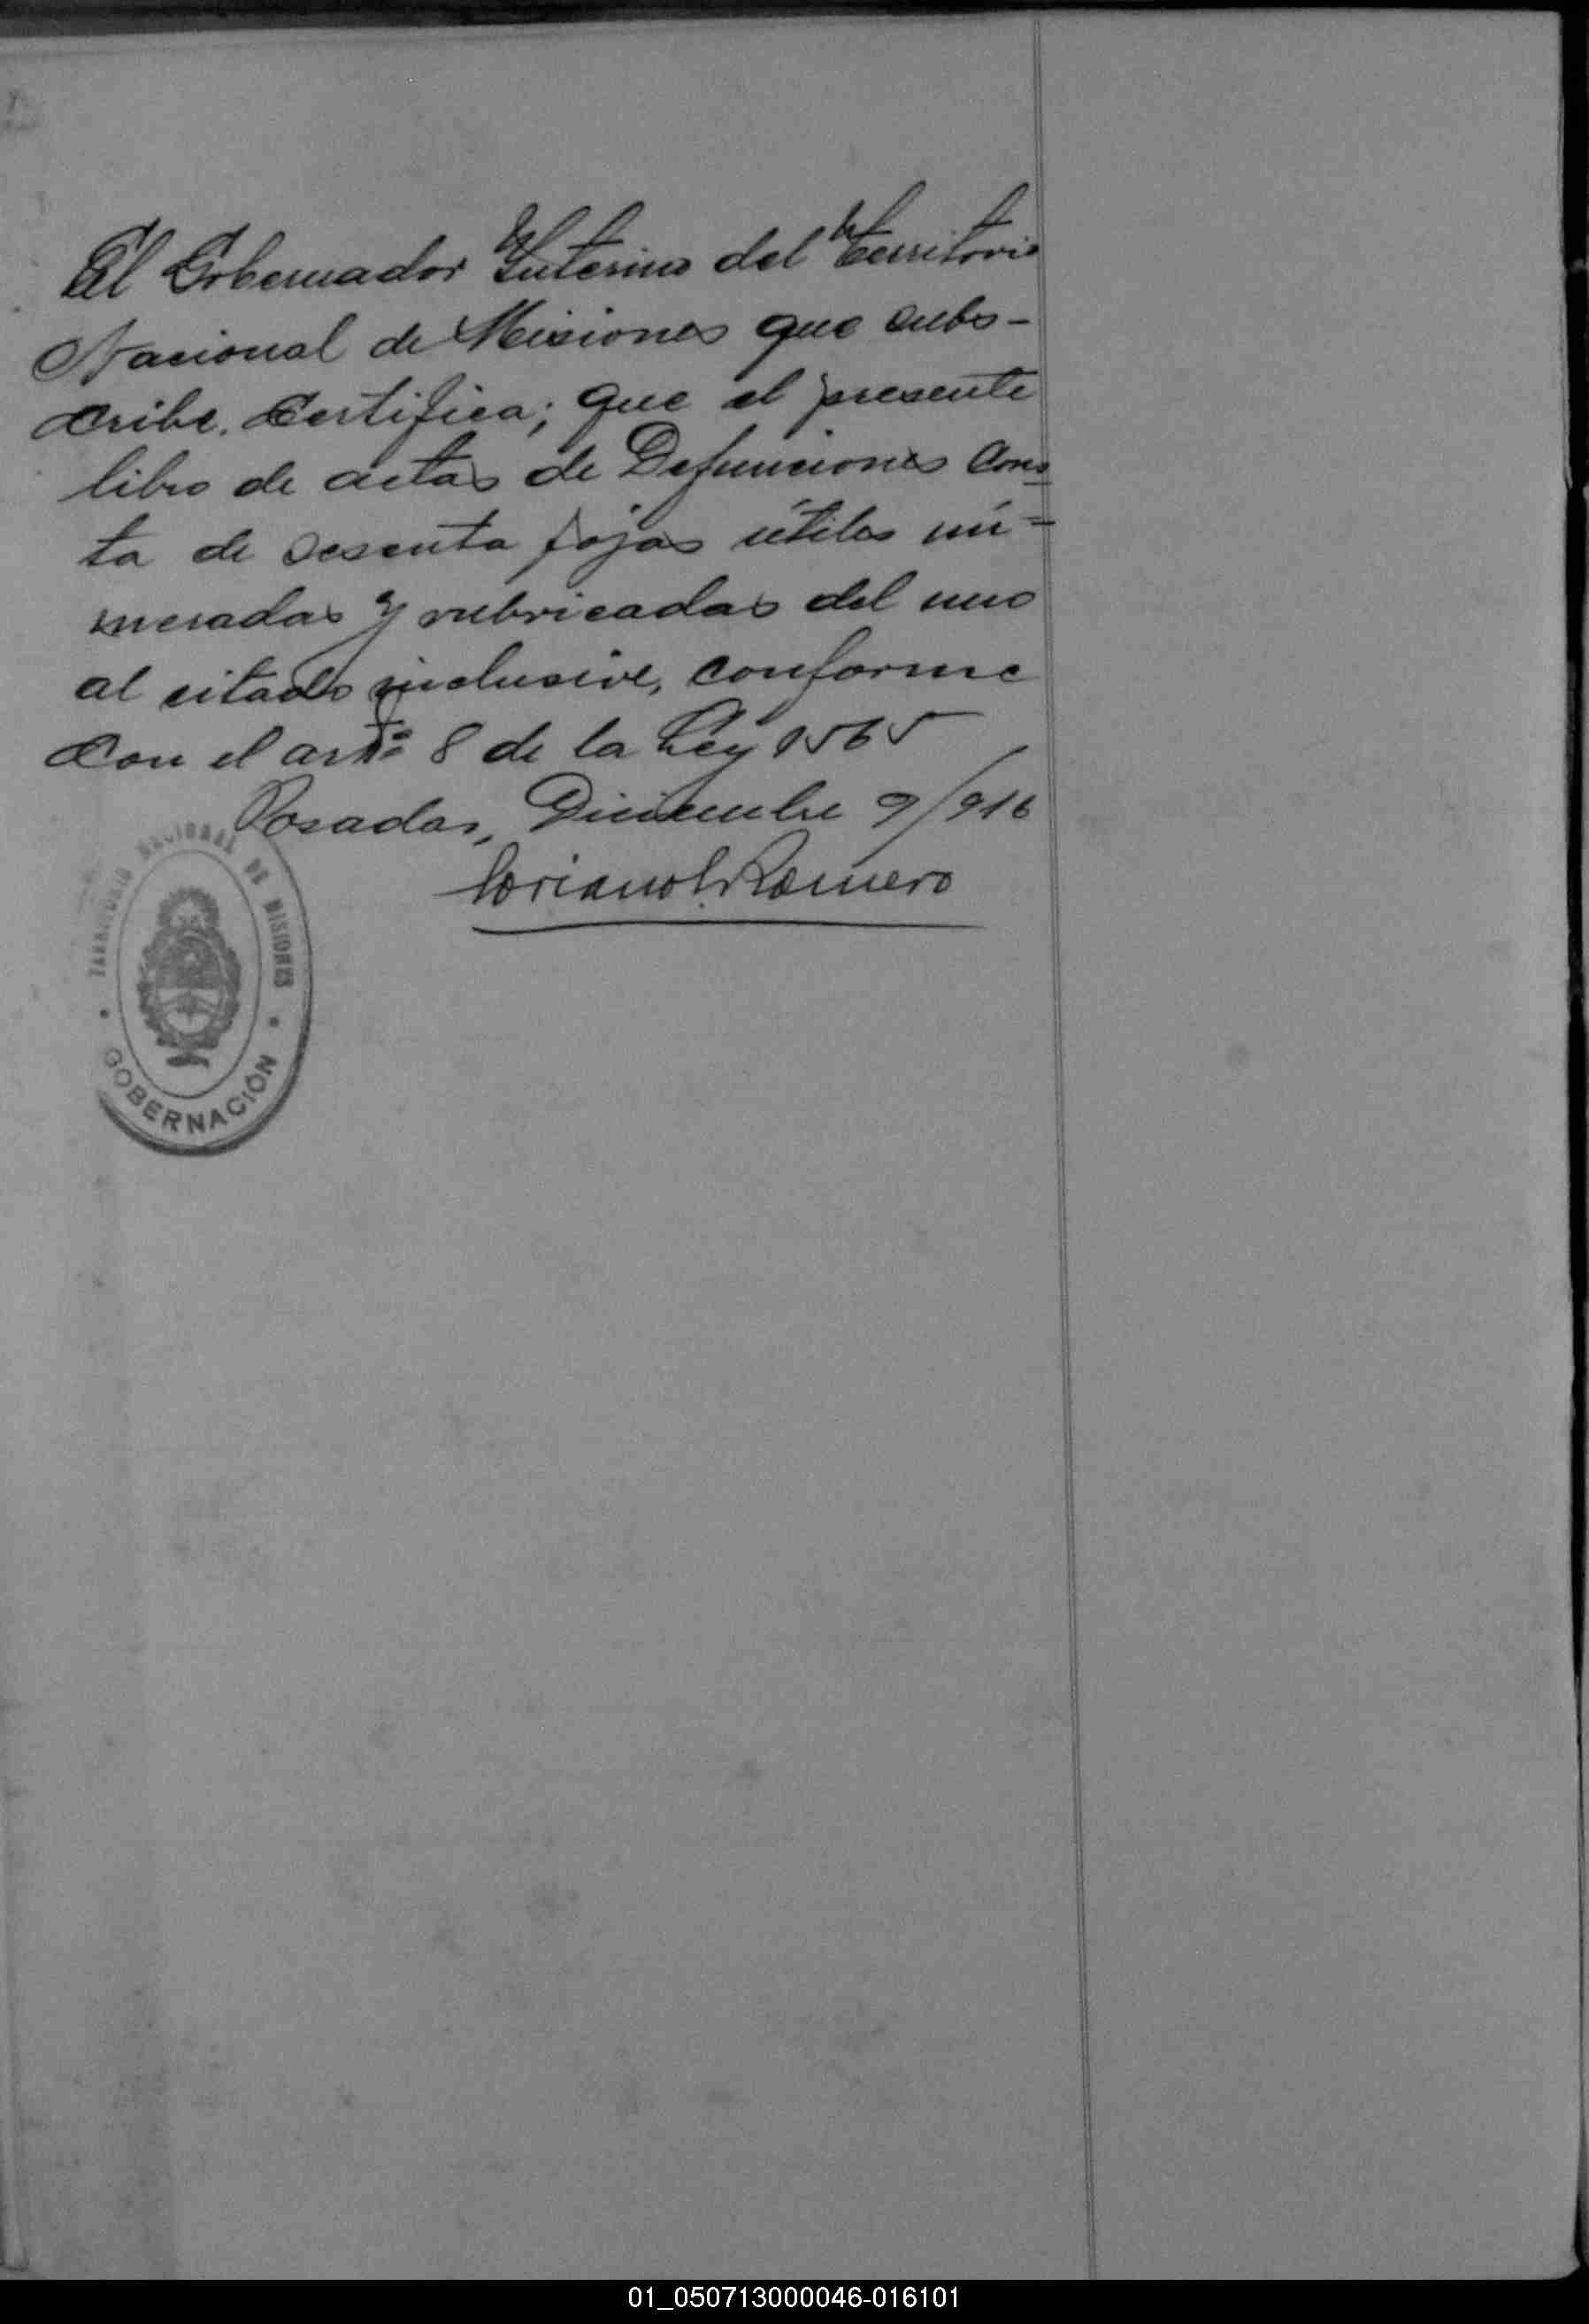 El Gobernador Interino del Territorio
Nacional de Misiones que subs-
cribe. Certifica; que el presente
libro de actas de Defunciones Cons=
ta de sesenta fojas útiles nu=
meradas y rubricadas del uno
al citado inclusive, conforme
con el arto 8 de la Ley 1565
Posadas, Diciembre 9/916
Romero
TERRITORIO NACIONAL DE MISIONES
GOBERNACIÓN
01_050713000046-016101